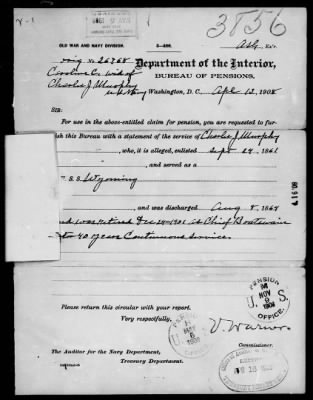 3856
OLD WAR AND NAVY DIVISION.
Wid No 26268
Caroline C. wid of
Charles J. Murphy
U.S. Navy
Department of the Interior,
BUREAU OF PENSIONS,
Washington, D. C., Apl 12, 1908
SIR:
For use in the above-entitled claim for pension, you are requested to fur-
ish this Bureau with a statement of the service of Charles J. Murphy
, who, it is alleged, enlisted Sept 24, 1861
, and served as a
U. S. S. Wyoming
, and was discharged Aug 8, 1864
and was retired Dec 1901 as Chief Boatswain
40 years Continuous service.
Please return this circular with your report.
Very respectfully,
V. Warner
Commissioner.
The Auditor for the Navy Department,
Treasury Department.
PENSION
U. S.
NOV
9
OFFICE.
PENSION
U. S.
OFFICE.